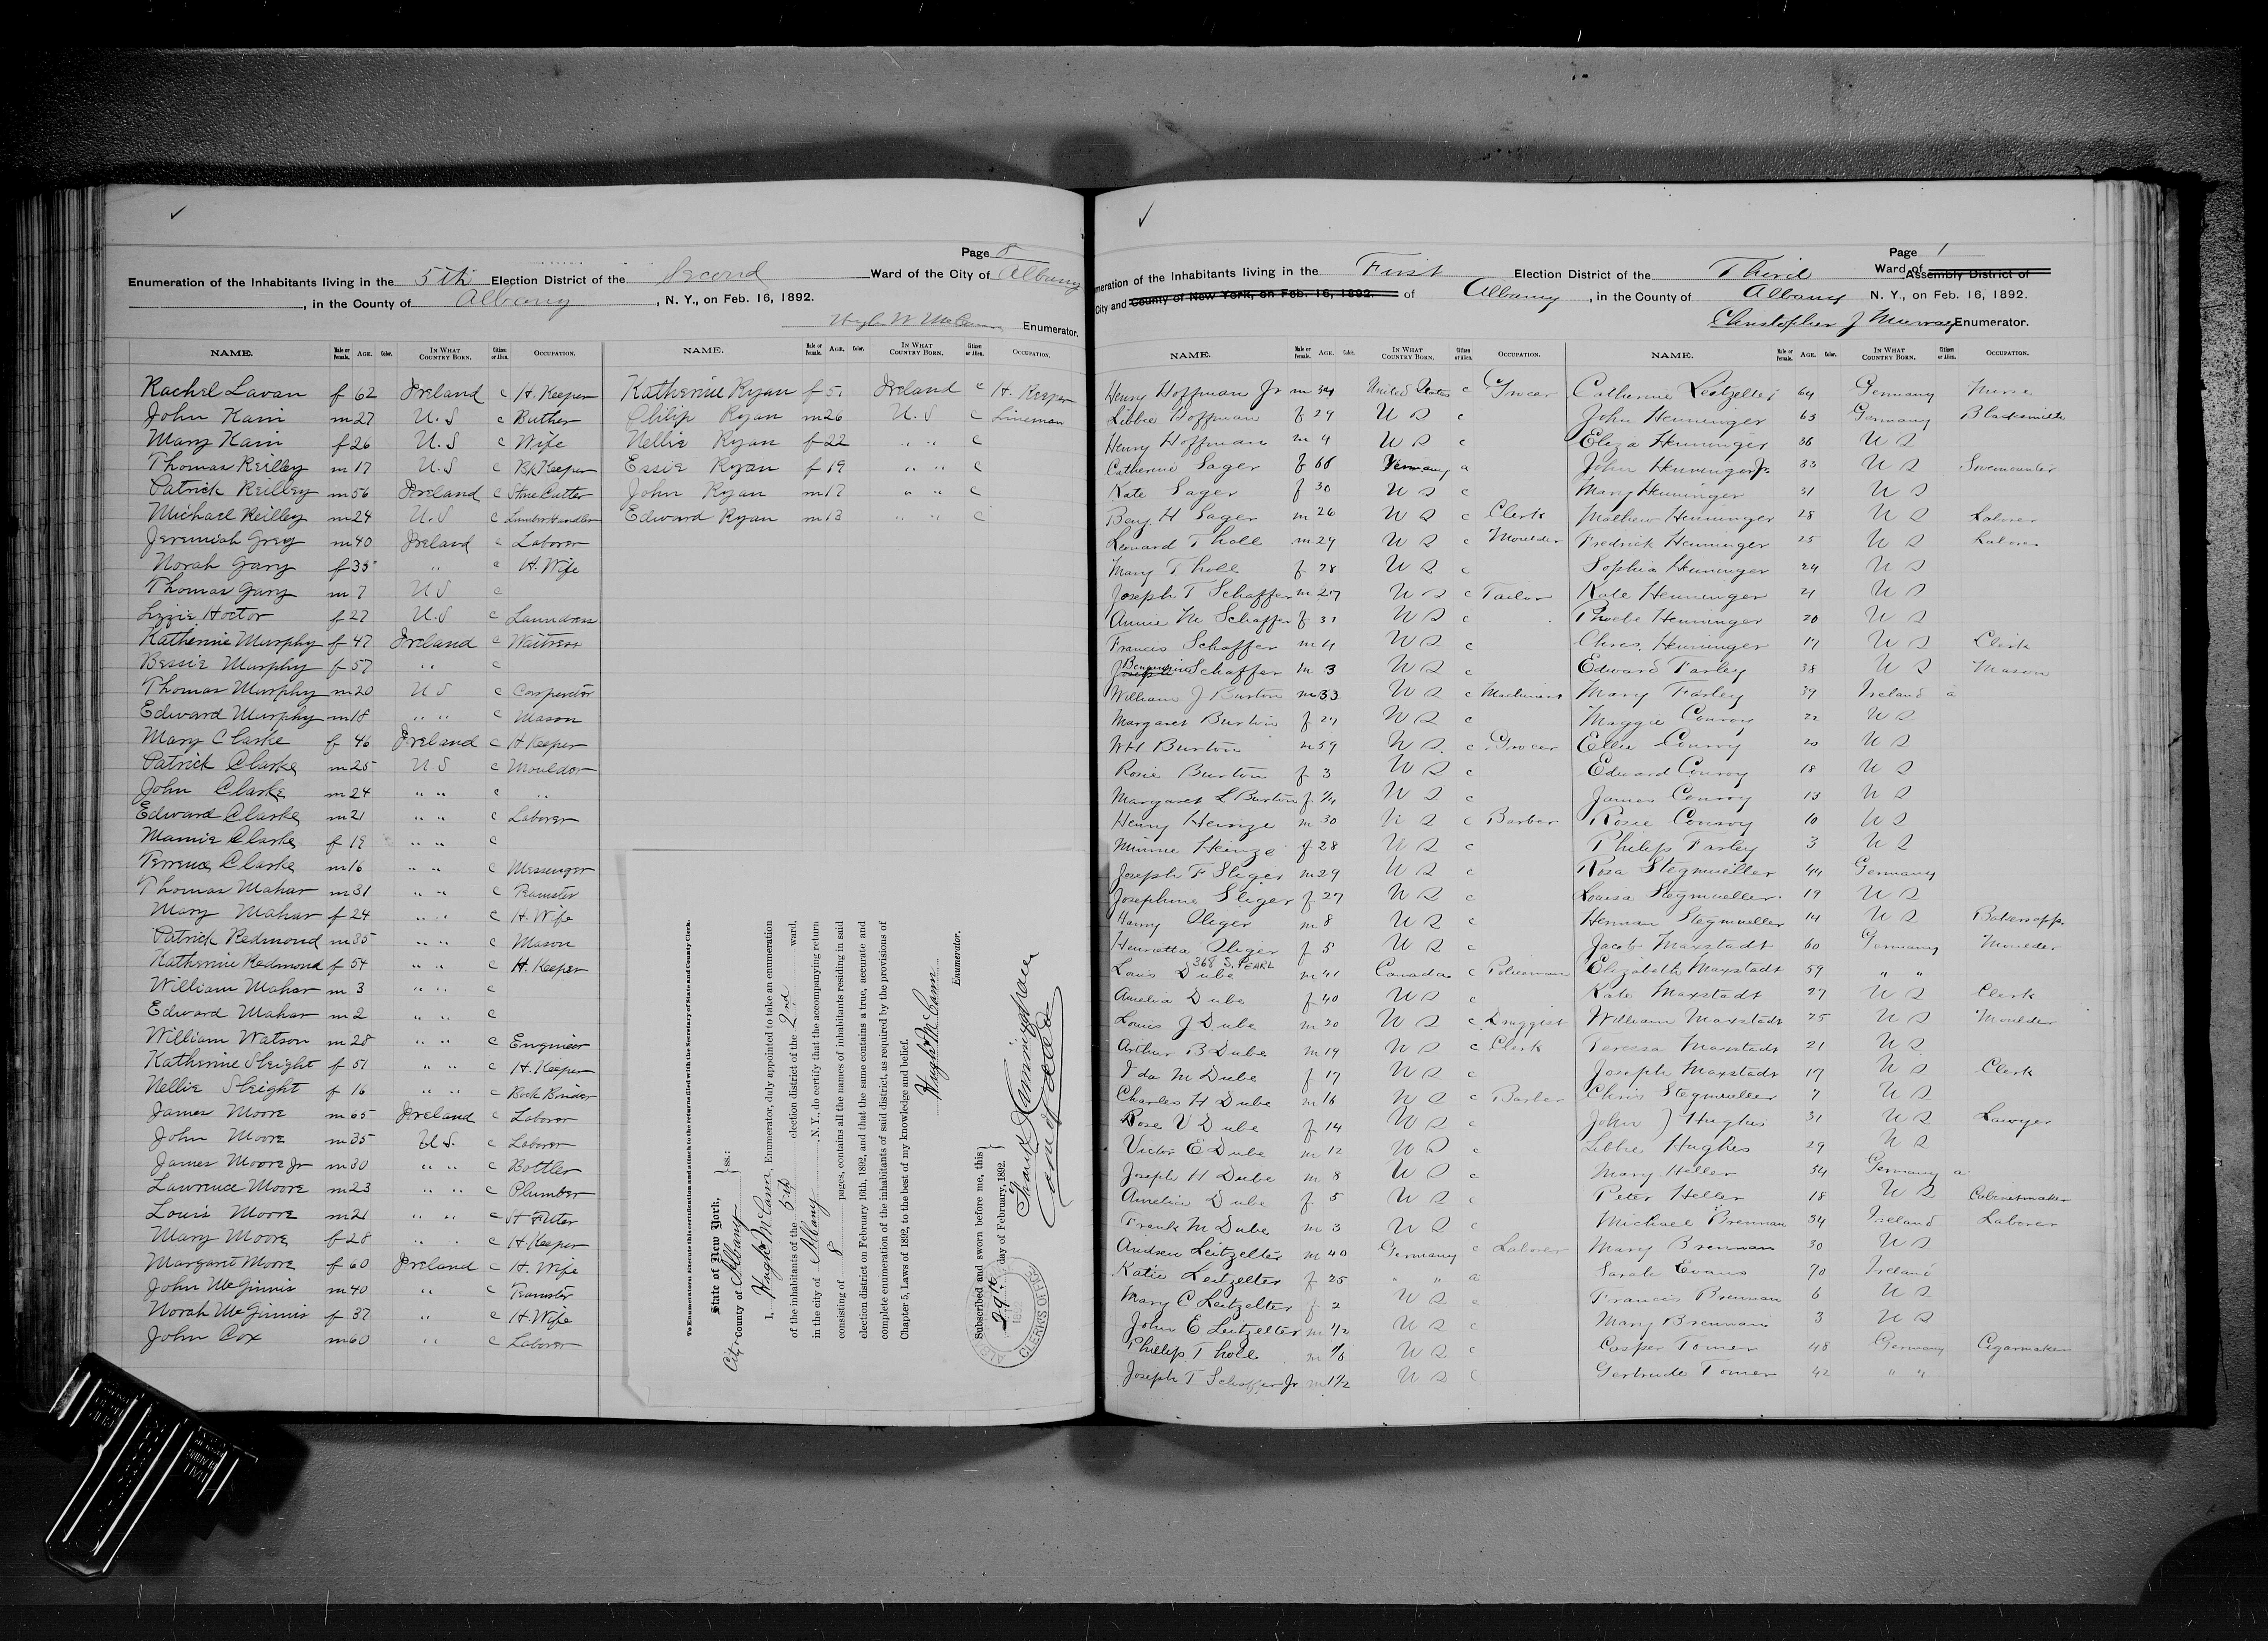 Page 8
Enumeration of the Inhabitants living in the 5th Election District of the Second Ward of the City of Albany
, in the County of Albany, N. Y., on Feb. 16, 1892.
Hugh W McCann Enumerator.
NAME. Male or Female. AGE. Color. IN WHAT COUNTRY BORN. Citizen or Alien. OCCUPATION.
Rachel Lavan f 62 Ireland c H. Keeper
John Kain m 27 U.S c Buther
Mary Kain f 26 U.S c Wife
Thomas Reilley m 17 U.S c Bk Keeper
Patrick Reilley m 56 Ireland c Stone Cutter
Michael Reilley m 24 U.S c Lumber Handler
Jeremiah Grey m 40 Ireland c Laborer
Norah Gary f 35 " c H. Wife
Thomas Gary m 7 U S c
Lizzie Hoctor f 27 U.S c Laundress
Katherine Murphy f 47 Ireland c Waitress
Bessie Murphy f 57 " c
Thomas Murphy m 20 U S c Compositor
Edward Murphy m 18 " " c Mason
Mary Clarke f 46 Ireland c H Keeper
Patrick Clarke m 25 U S c Moulder
John Clarke m 24 " " c "
Edward Clarke m 21 " " c Laborer
Mamie Clarke f 19 " " c
Terrence Clarke m 16 " " c Messenger
Thomas Mahar m 31 " " c Teamster
Mary Mahar f 24 " " c H. Wife
Patrick Redmond m 35 " " c Mason
Katherine Redmond f 54 " " c H. Keeper
William Mahar m 3 " " c
Edward Mahar m 2 " " c
William Watson m 28 " " c Engineer
Katherine Sleight f 51 " " c H. Keeper
Nellie Sleight f 16 " " c Book Binder
James Moore m 65 Ireland c Laborer
John Moore m 35 U.S. c Laborer
James Moore Jr m 30 " " c Bottler
Lawrence Moore m 23 " " c Plumber
Louis Moore m 21 " " c
Mary Moore f 28 " " c H. Keeper
Margaret Moore f 60 Ireland c H. Wife
John McGinnis m 40 " c Teamster
Norah McGinnis f 37 " c H. Wife
John Cox m 60 " c Laborer
NAME. Male or Female. AGE. Color. IN WHAT COUNTRY BORN. Citizen or Alien. OCCUPATION.
Katherine Ryan f 51 Ireland c H. Keeper
Philip Ryan m 26 U.S c Lineman
Nellie Ryan f 22 " " c
Essie Ryan f 19 " " c
John Ryan m 17 " " c
Edward Ryan m 13 " " c
To Enumerators: Execute this certification and attach to the returns filed with the Secretary of State and County Clerk.
State of New York,
City & County of Albany } ss.:
I, Hugh W. McCann, Enumerator, duly appointed to take an enumeration
of the inhabitants of the 5th election district of the 2nd ward,
in the city of Albany, N. Y., do certify that the accompanying return
consisting of 8 pages, contains all the names of inhabitants residing in said
election district on February 16th, 1892, and that the same contains a true, accurate and
complete enumeration of the inhabitants of said district, as required by the provisions of
Chapter 5, Laws of 1892, to the best of my knowledge and belief.
Hugh W. McCann
Enumerator.
Subscribed and sworn before me, this }
29th day of February, 1892. }
CLERKS OFFICE
Page 1
Enumeration of the Inhabitants living in the First Election District of the Third Ward of Assembly District of
City and County of New York, on Feb. 16, 1892. of Albany, in the County of Albany N. Y., on Feb. 16, 1892.
Christopher J Murray Enumerator.
NAME. Male or Female. AGE. Color. IN WHAT COUNTRY BORN. Citizen or Alien. OCCUPATION.
Henry Hoffman Jr m 34 United States c Grocer
Libbie Hoffman f 29 U S c
Henry Hoffman m 4 U S c
Catherine Sager f 66 Germany a
Kate Sager f 30 U S c
Benj. H Sager m 26 U S c Clerk
Leonard Tholl m 29 U S c Moulder
Mary Tholl f 28 U S c
Joseph T Schaffer m 27 U S c Tailor
Annie M Schaffer f 31 U S c
Francis Schaffer m 4 U S c
Joseph Benjamin Schaffer m 3 U S c
William J Burton m 33 U S c Machinist
Margaret Burton f 27 U S c
WH Burton m 59 U S. c Grocer
Rosie Burton f 3 U S c
Margaret L Burton f 1/4 U S c
Henry Heinze m 30 U S c Barber
Minnie Heinze f 28 U S c
Joseph F Sliger m 29 U S c
Josephine Sliger f 27 U S c
Harry Sliger m 8 U S c
Henrietta Sliger f 5 U S c
368 S. PEARL
Louis Dube m 41 Canada c Policeman
Amelia Dube f 40 U S c
Louis J Dube m 20 U S c Druggist
Arthur B Dube m 19 U S c Clerk
Ida M Dube f 17 U S c
Charles H Dube m 16 U S c Barber
Rose V Dube f 14 U S c
Victor E Dube m 12 U S c
Joseph H Dube m 8 U S c
Amelia Dube f 5 U S c
Frank M Dube m 3 U S c
Andrew Leitzelter m 40 Germany c Laborer
Katie Leitzelter f 25 " " a
Mary C Leitzelter f 2 U S c
John E Leitzelter m 1/2 U S c
Phillip Tholl m U S c
Joseph T Schaffer Jr m 1 1/2 U S c
NAME. Male or Female. AGE. Color. IN WHAT COUNTRY BORN. Citizen or Alien. OCCUPATION.
Catherine Leitzelter 64 Germany Nurse
John Henninger 63 Germany Blacksmith
Eliza Henninger 36 U S
John Henninger Jr 33 U S
Mary Henninger 31 U S
Mathew Henninger 28 U S Laborer
Fredrick Henninger 25 U S Laborer
Sophia Henninger 24 U S
Kate Henninger 21 U S
Phoebe Henninger 20 U S
Chris. Henninger 17 U S Clerk
Edward Farley 38 U S Mason
Mary Farley 39 Ireland a
Maggie Conroy 22 U S
Ellie Conroy 20 U S
Edward Conroy 18 U S
James Conroy 13 U S
Rosie Conroy 10 U S
Philip Farley 3 U S
Rosa Stegmueller 44 Germany
Louisa Stegmueller 19 U S
Herman Stegmueller 14 U S Bakersapp.
Jacob Maxstadt 60 Germany Moulder
Elizabeth Maxstadt 59 " "
Kate Maxstadt 27 U S Clerk
William Maxstadt 25 U S Moulder
Teressa Maxstadt 21 U S
Joseph Maxstadt 17 U S Clerk
Chris Stegmueller 7 U S
John J Hughes 31 U S Lawyer
Libbie Hughes 29 U S
Mary Heller 54 Germany a
Peter Heller 18 U S Cabinetmaker
Michael Brennan 34 Ireland Laborer
Mary Brennan 30 U S
Sarah Evans 70 Ireland
Francis Brennan 6 U S
Mary Brennan 3 U S
Casper Tomer 48 Germany Cigarmaker
Gertrude Tomer 42 " "